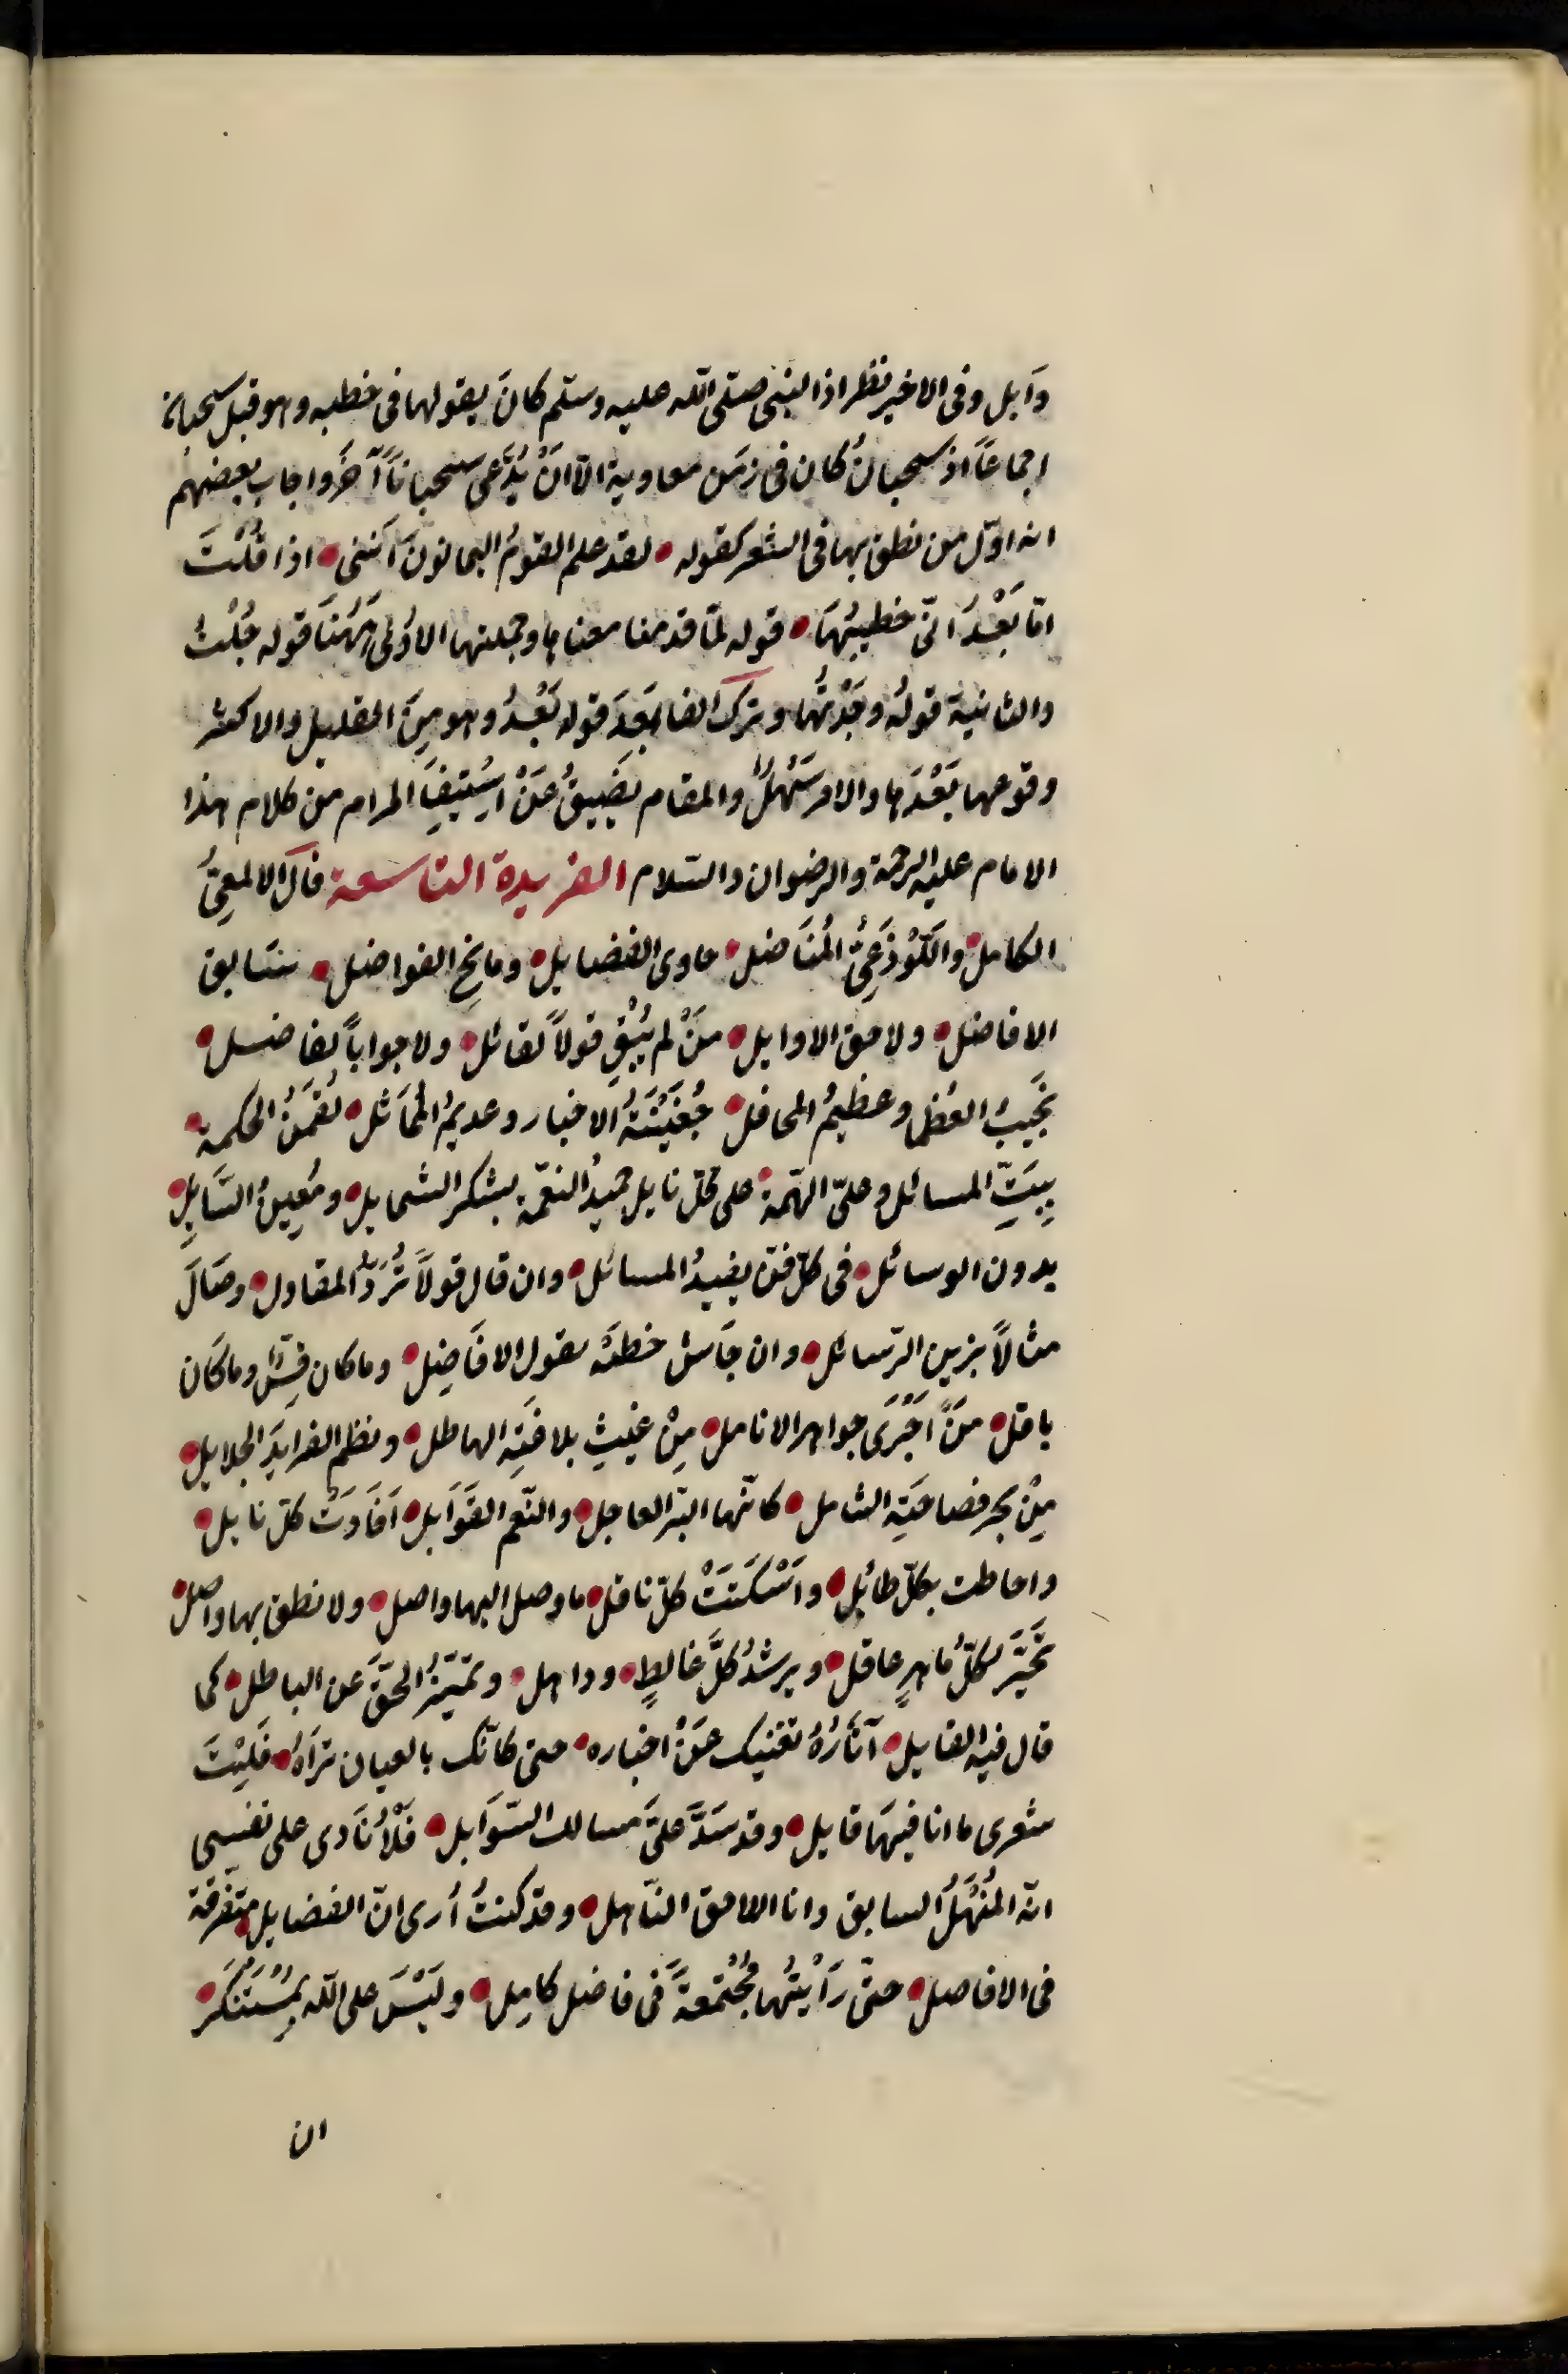 وَابل وفى الاخير نظر اذ النبى صلّى الله عليه وسلّم كانَ يقولها فى خطبه وهو قبل سحبان
اجماعًا اذ سحبانُ كان فى زمَن معاوية الّا انْ يُدَّعى سحبانًا آخَر واجاب بعضهُم
انه اوّل من نطق بها فى الشعر كقوله • لقد علم القومُ اليمانونَ اَنّنى • اذا قُلْتُ
امّا بَعْدُ انّى خطيبُهَا • قوله لمّا قدمنا معناها وجملتها الاوْلى هَهُنَا قوله جُلْتُ
والثانية قولُه وجَدْتُها وتركَ الفا بَعدَ قوله بَعْدُ وهو مِنَ القليل والاكثر
وقوعها بَعْدَها والامر سَهْلٌ والمقام يَضيقُ عَنْ اسْتِيفَا المرام من كلام هذا
الامام عليه الرحمة والرضوان والسّلام الفريدة التاسعة قالَ الالمعِىُّ
الكامل • واللّوْذَعِىُّ المُنَاضل • حاوى الفضايل • ومانحِ الفواضل • سَابق
الافاضل • ولاحق الاوايل • مَنْ لم يُبْقِ قولًا لقائل • ولا جوابًا لفاضل •
نَجِيبُ العُظما وعظيمُ المحافل • جُفَيْنَةُ الاخبار وعديمُ المُمَاثل • لُقمَنُ الحكمة •
ببَتِّ المسائل وعلىّ الهّمة • على كلّ نايل حميدُ النعّمة بشكر الشمايل • ومُعِينُ السَّايلِ •
بدون الوسائل • فى كلّ فنّ يفيدُ المسائل • وان قال قولًا تُرَدُّ المقاول • وصَالَ
مثالًا بزين الرّسائل • وان جَاش خطبَه يقول الافَاضِل • وما كان قِسٌّ وما كَان
باقل • مَنْ اَجْرَى جواهر الانامل • مِنْ غيثِ بلاغَتِه الهاطل • ونظم الفرايدَ الجلايل •
مِنْ بحر فصاحَتِه الشامل • كانّها البّر العاجل • والنّعم القَوَابل • اَفَادَتْ كلّ نايل •
واحاطت بكلّ طائِل • واَسْكَتَتْ كلّ ناقل • ما وصل اليها واصل • ولا نطق بها واصل •
تَحيَّر كلّ مُاهرٍ عاقل • ويرشدُ كلَّ غالطٍ • وذاهل • وتمَيّزُ الحقَّ عَن الباطل • كما
قال فيه القايل • آثارُهُ تغنيك عَنْ اخباره • حتى كانّك بالعيان تراهُ • فَلَيْتَ
شعرى ما انا فيهَا قايل • وقد سَدَّ علىَّ مسالك السّوَابل • فَلْاُنَادى على نفسِى
انّه المُنَهِّلُ السابق وانا اللاحق النّاهل • وقد كنتُ اُرى انّ الفضايل متفرّقة
فى الافاضل • حتّى رَاَيْتُها مُجْتمعةً فى فاضل كامِل • ولَيْسَ على اللّه بمُسْتَنْكَرِ •
ان